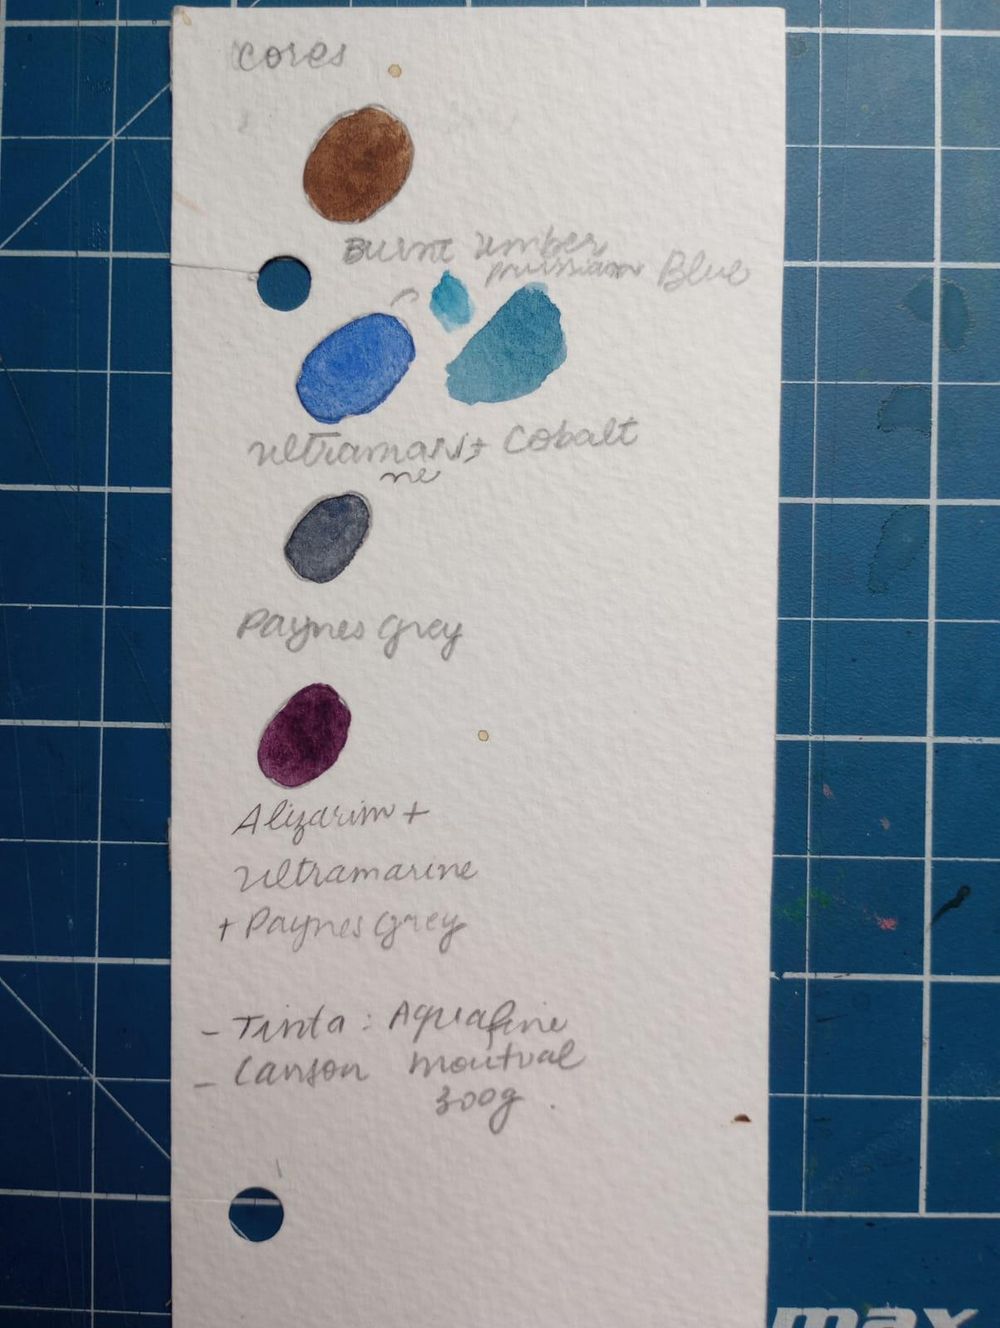 cores
Burnt umber
prussian Blue
ultramari + Cobalt
ne
Paynes grey
Alizarim +
ultramarine
+ Paynes Grey
- Tinta : Aquafine
- Canson moutval
300g .
max